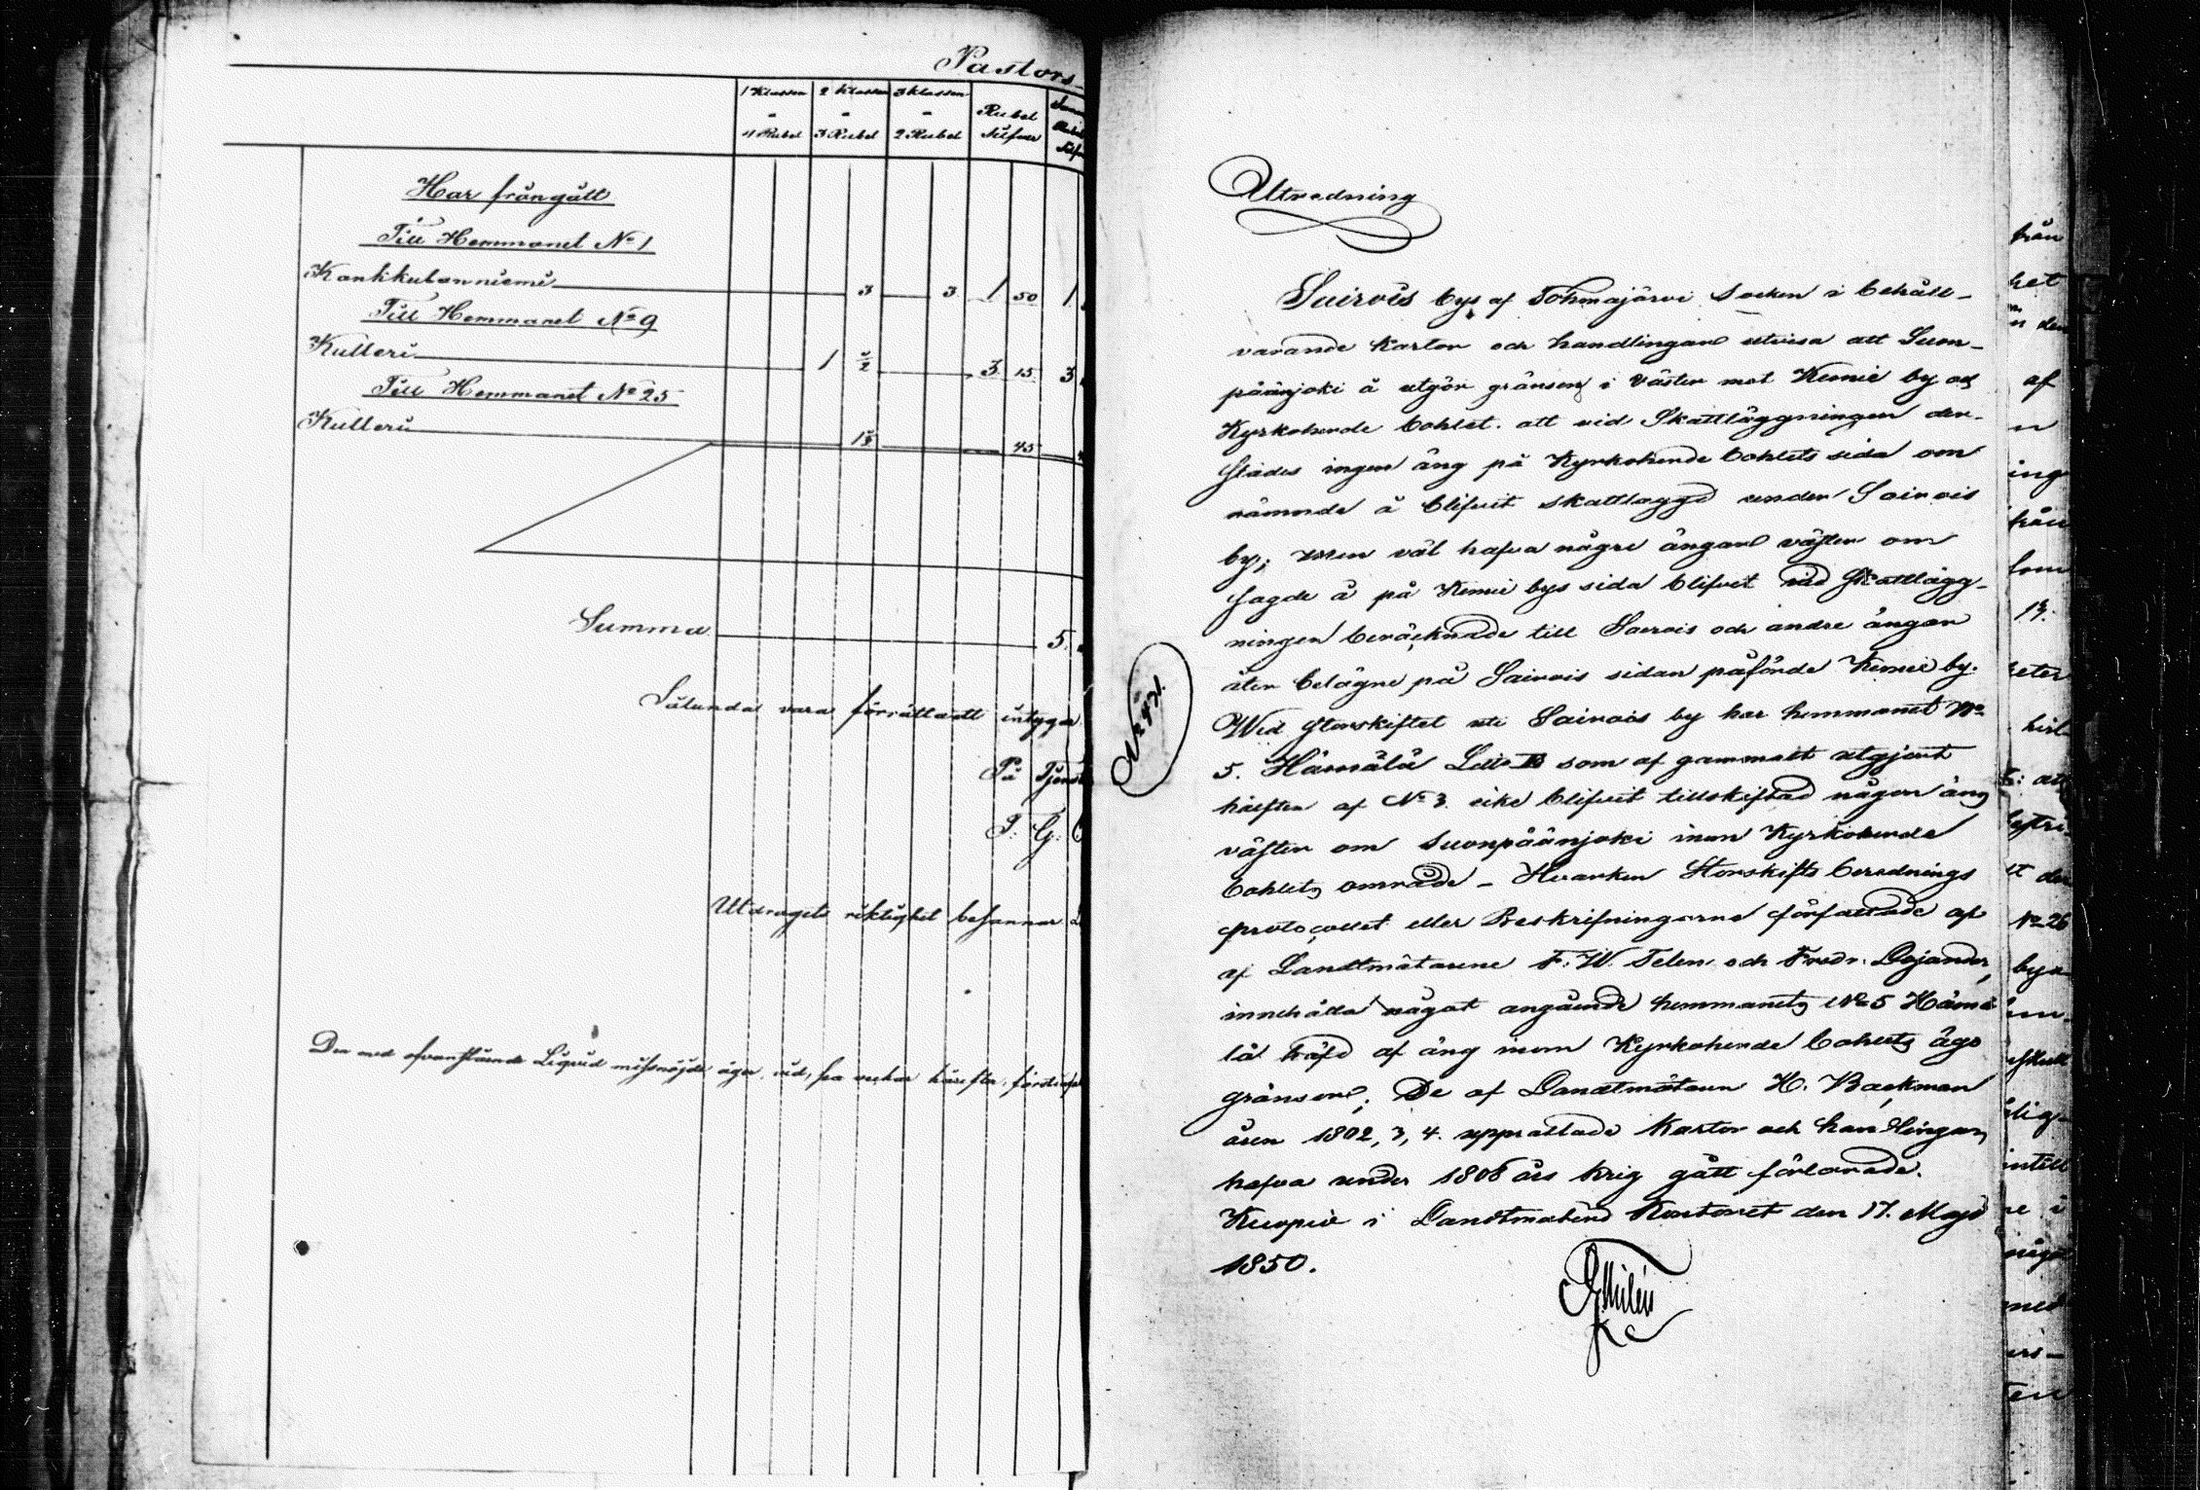 Pastors-
1 Klassen 2 Klassen 3 Klassen Rubel
4 Rubel 3 Rubel 2 Rubel Silfver
Har frångått
Till Hemmanet No 1
Kankkulanniemi 3 3 1 50 1
Till Hemmanet No 9
Kulleri 1 3 15 3
Till Hemmanet No 25
Kulleri 45
Summa 5.
Sålunda vara förrättadt intygar
På Tjenste
Utdragets riktighet besannar
Den med ofvanstående Liquid missnöjde äger, vid,
No 421.
Utredning
Sairois by af Tohmajärvi Socken i behåll-
varande kartor och handlingar utvisa att Suon-
päänjoki å utgör gränsen i väster mot Kemie by och
Kyrkoherde bohlet. att vid Skattläggningen der-
städes ingen äng på Kyrkoherde bohlets sida om
nämnde å blifvit skattlagd under Sairois
by; men väl hafva några ängar väster om
sagde å på Kemie bys sida blifvit vid skattlägg-
ningen beräcknade till Sairois och andre ängar
åter belägne på Sairois sidan påförde Kemie by.
Wid storskiftet uti Sairois by har hemmanet No
5. Hämälä Litt. B som af gammalt utgjort
hälften af No 3. icke blifvit tillskiftad någon äng
väster om Suonpäänjoki inom Kyrkoherde
bohlets område - Hvarken Storskifts berednings
protocollet eller Beskrifningarna författade af
af Landtmätarene F. W. Telen och Fredr. Lojander,
innehålla något angående hemmanets No 5 Hämä
lä häfd af äng inom Kyrkoherde bohlets ägo
gränser; De af Landtmätaren H. Backman
åren 1802, 3, 4. upprättade Kartor och handlingar,
hafva under 1808 års krig gått förlorade.
Kuopio i Landtmäteri Kontoret den 17. Maji
1850.
från
het
den
af
n
ing
från
som
eter
No 26
intill
med